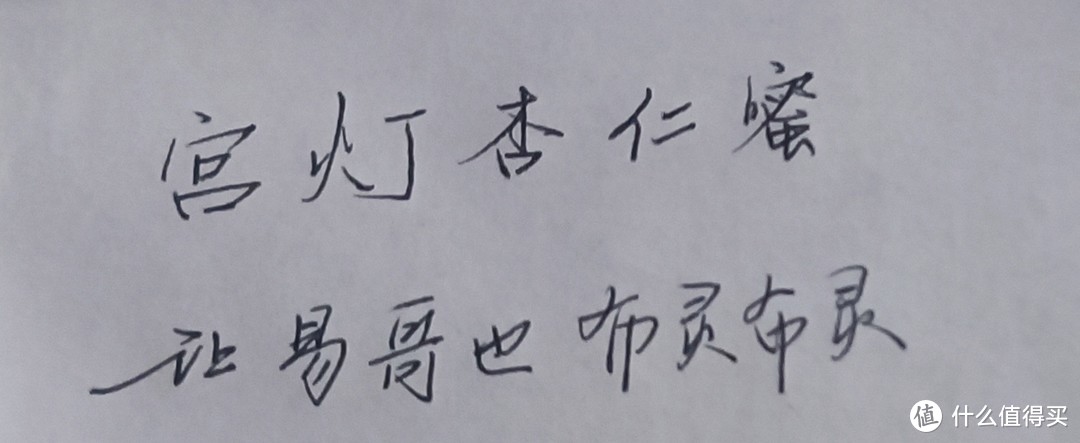 宫灯杏仁蜜
让易哥也布灵布灵
值 什么值得买